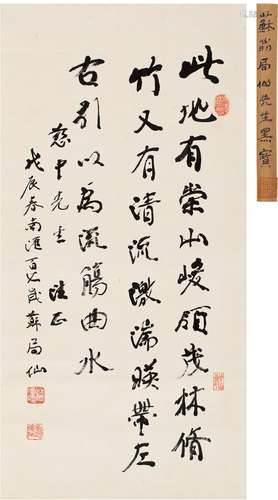 此地有崇山峻領茂林脩
竹又有清流激湍暎帶左
右引以為流觴曲水
慈中先生 法正
戊辰春南滙百七歲蘇局仙
蘇翁局仙先生墨寶